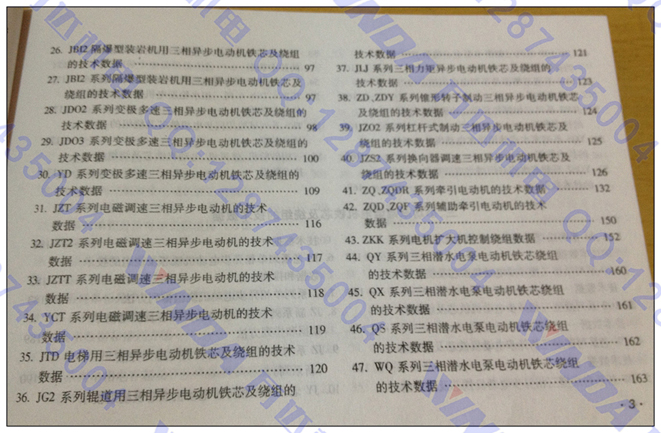 26. JBI2 隔爆型装岩机用三相异步电动机铁芯及绕组
的技术数据 ………………………………… 97
27. JBI2 系列隔爆型装岩机用三相异步电动机铁芯及
绕组的技术数据 ………………………………… 97
28. JDO2 系列变极多速三相异步电动机铁芯及绕组的
技术数据 ………………………………… 98
29. JDO3 系列变极多速三相异步电动机铁芯及绕组的
技术数据 ………………………………… 100
30. YD 系列变极多速三相异步电动机铁芯及绕组的
技术数据 ………………………………… 109
31. JZT 系列电磁调速三相异步电动机的技术
数据 ………………………………… 116
32. JZT2 系列电磁调速三相异步电动机的技术
数据 ………………………………… 117
33. JZTT 系列电磁调速三相异步电动机的技术
数据 ………………………………… 118
34. YCT 系列电磁调速三相异步电动机的技术
数据 ………………………………… 119
35. JTD 电梯用三相异步电动机铁芯及绕组的技术
数据 ………………………………… 120
36. JG2 系列辊道用三相异步电动机铁芯及绕组的
技术数据 ………………………………… 121
37. JLJ 系列三相力矩异步电动机铁芯及绕组的
技术数据 ………………………………… 123
38. ZD、ZDY 系列锥形转子制动三相异步电动机铁芯
及绕组的技术数据 ………………………………… 124
39. JZO2 系列杠杆式制动三相异步电动机铁芯及
绕组的技术数据 ………………………………… 125
40. JZS2 系列换向器调速三相异步电动机铁芯及
绕组的技术数据 ………………………………… 126
41. ZQ、ZQDR 系列牵引电动机的技术数据 ………… 132
42. ZQD、ZQF 系列辅助牵引电动机的技术
数据 ………………………………… 150
43. ZKK 系列电机扩大机控制绕组数据 ………… 152
44. QY 系列三相潜水电泵电动机铁芯绕组
的技术数据 ………………………………… 160
45. QX 系列三相潜水电泵电动机铁芯绕组
的技术数据 ………………………………… 161
46. QS 系列三相潜水电泵电动机铁芯绕组
的技术数据 ………………………………… 162
47. WQ 系列三相潜水电泵电动机铁芯绕组
的技术数据 ………………………………… 163
· 3 ·
WINDA 万匹机电 QQ:1287435004